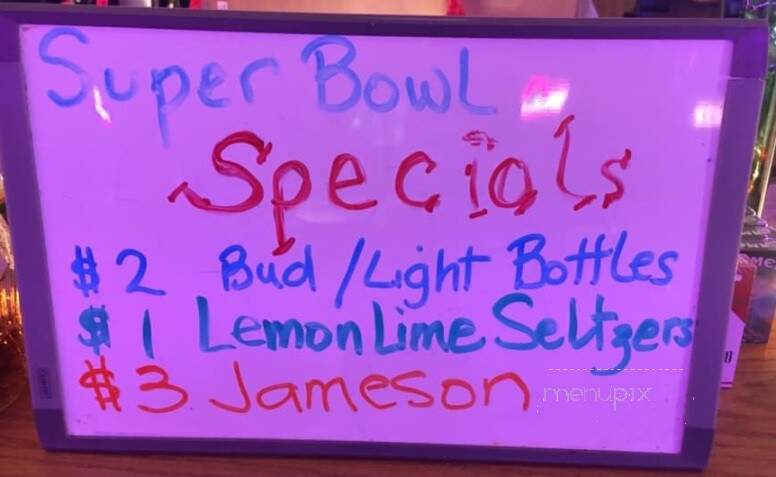 Super Bowl
Specials
$2 Bud/Light Bottles
$1 Lemon Lime Seltzers
$3 Jameson
menupix